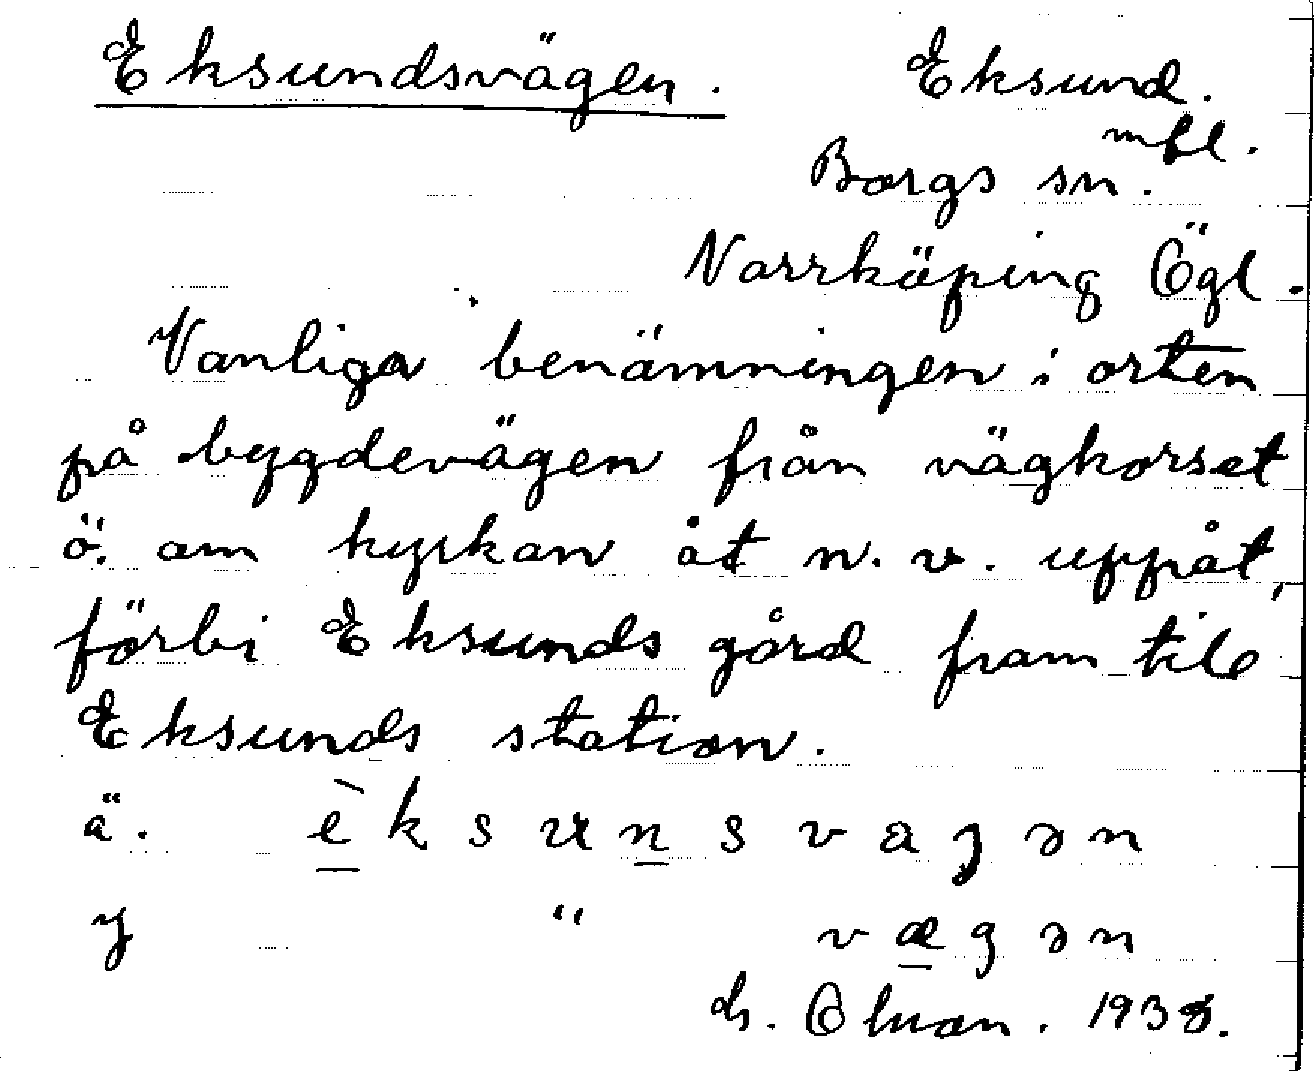 Eksundsvägen. Eksund.
mfl.
Borgs sn.
Norrköping Ögl.
Vanliga benämningen i orten
på bygdevägen från vägkorset
ö. om kyrkan åt n. v. uppåt,
förbi Eksunds gård fram till
Eksunds station.
ä. è k s u n s v a ȷ ə n
y " v æ g ə n
1938.